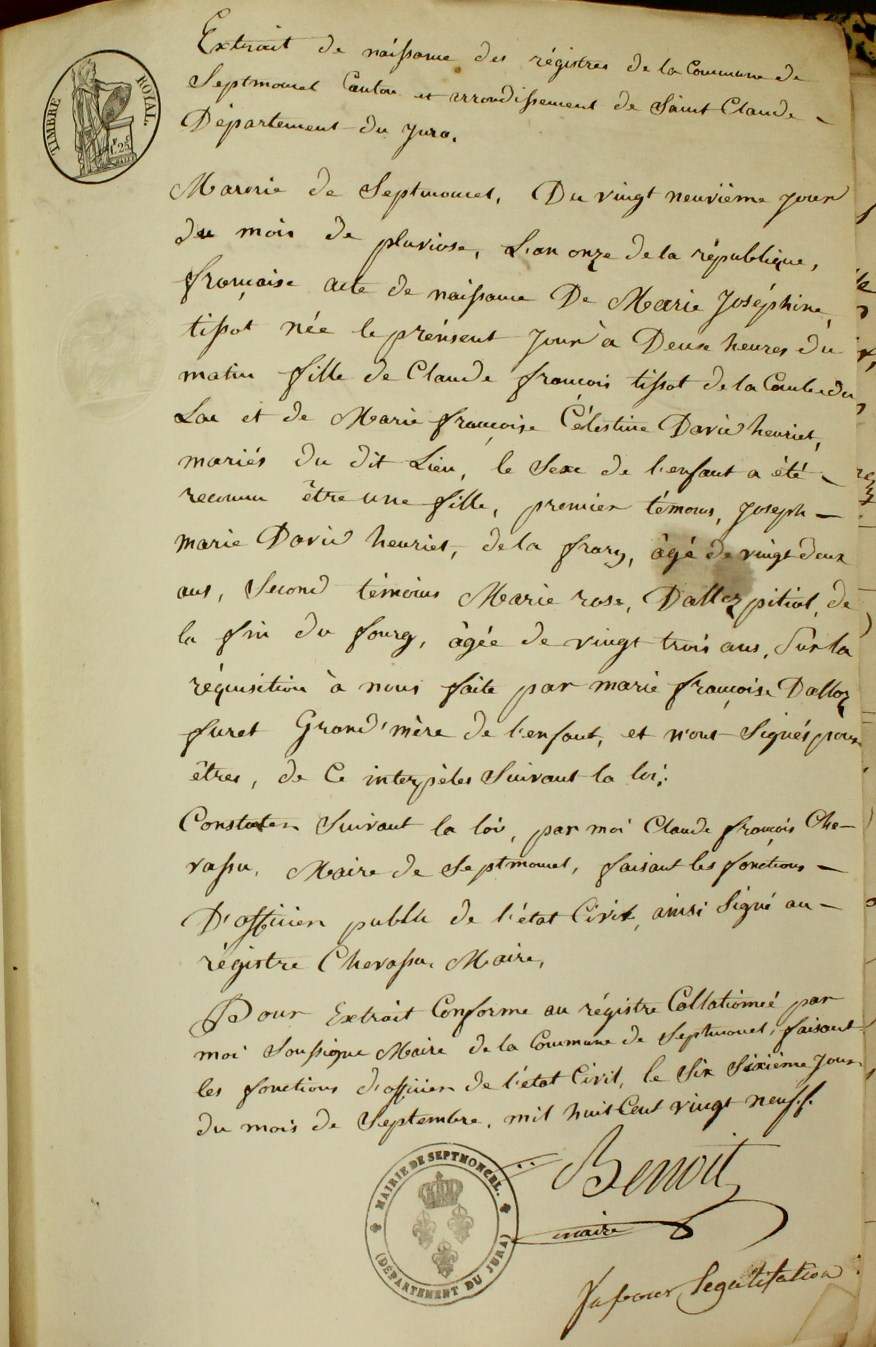 TIMBRE ROYAL.
F. C. 25
Extrait de naissance des régistres de la Commune de
Septmoncel Canton et arrondissement de Saint Claude
Département du jura.
Mairie de Septmoncel, Du vingt neuvième jour
du mois de pluviose, L'an onze de la république,
française acte de naissance De Marie joséphine
tissot née le présent jour à Deux heures du
matin fille de Claude françois tissot de la Combe du
Lac et de Marie françoise Célestine David henriet,
mariés du dit Lieu, le Sexe de l'enfant a été
reconnu être une fille, premier témoins, joseph
marie David henriet, de la frary, âgé de vingt deux
ans, Second témoins Marie rose, Dalloz pitiot, de
la fin du fourg, âgée de vingt trois ans, Sur la
réquisition à nous faite par marie françoise Dalloz
furet Grand'mère de l'enfant, et n'ont Signés pour
êtres, de Ce interpelés Suivant la loi:
Constater Suivant la loi, par moi Claude françois Che-
vassu, Maire de Septmoncel, faisant les fonctions
D'officier public de l'état Civil, ainsi Signé au
régistre Chevassu Maire,
Pour Extrait Conforme au régistre Collationné par
moi Soussigne Maire de la Commune de Septmoncel, faisant
les fonctions d'officier de l'état Civil, le Six Sixième jour
du mois de Septembre, mil huit Cent vingt neuf.
Benoit
maire
MAIRIE DE SEPTMONCEL.
(DÉPARTEMENT DU JURA)
Vu pour legalisation